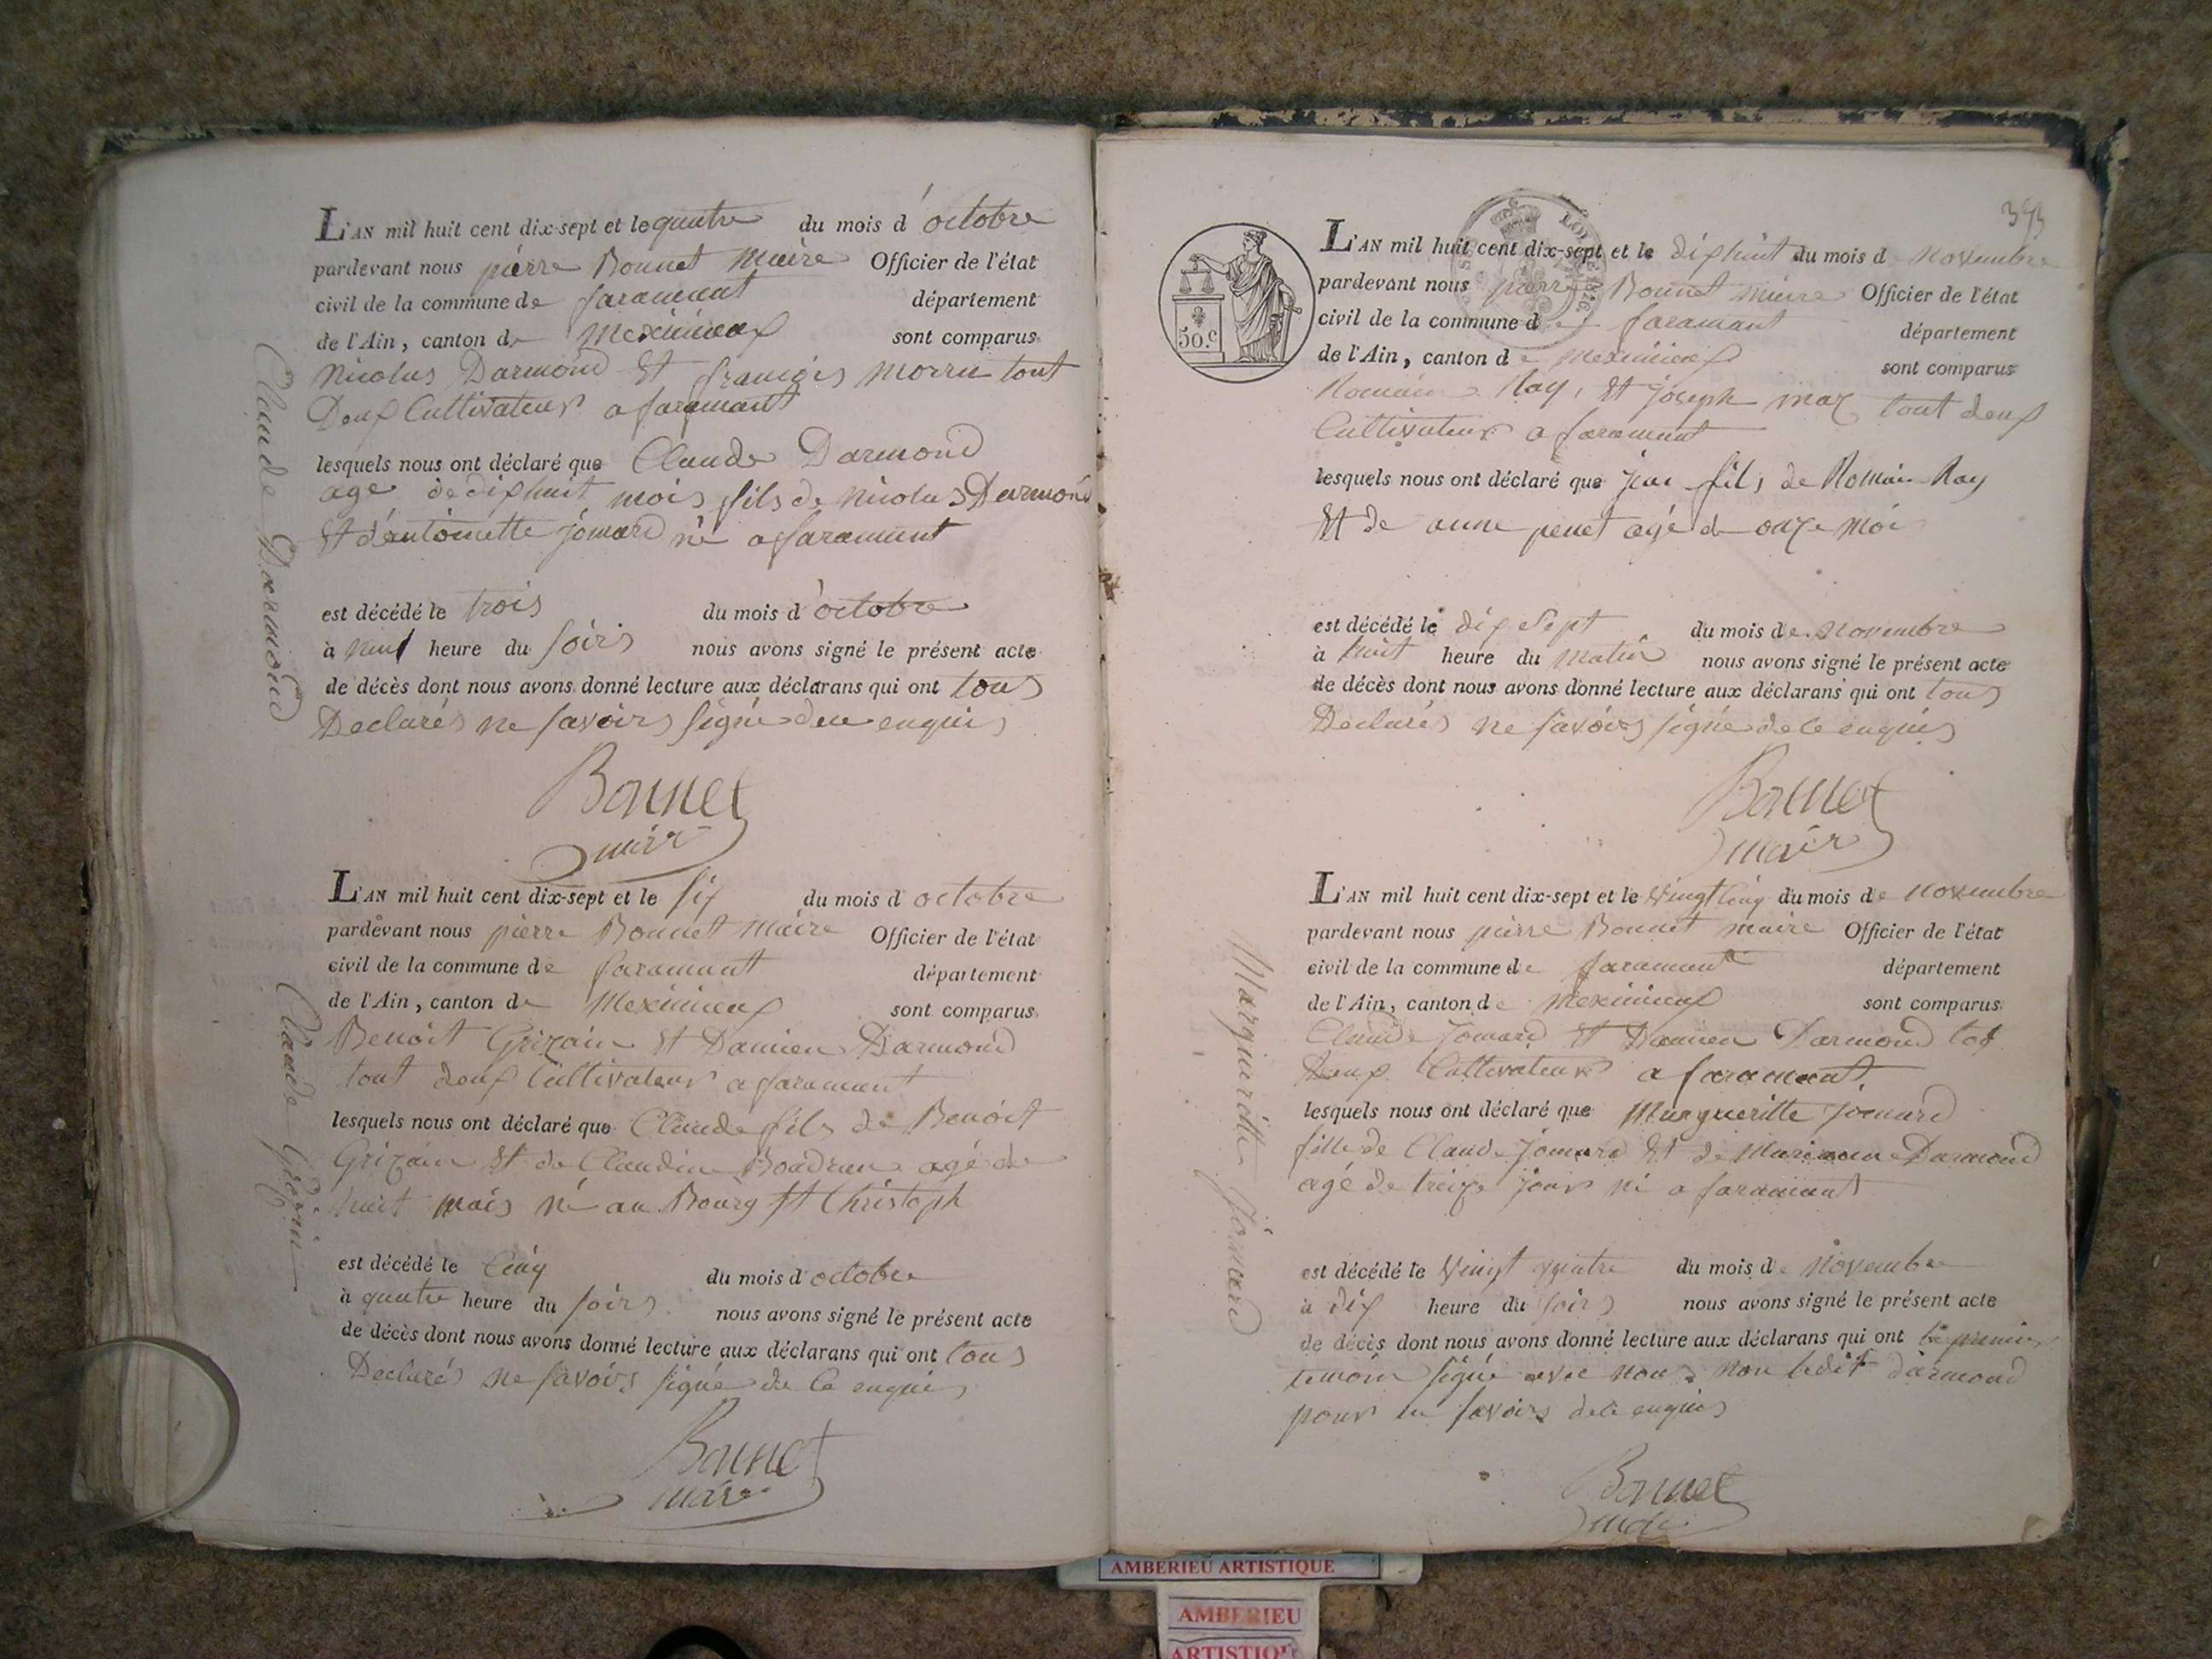 Claude Darmond
L'AN mil huit cent dix-sept et le quatre du mois d'octobre
pardevant nous pierre Bonnet Maire Officier de l'état
civil de la commune de faramant département
de l'Ain, canton de Meximieux sont comparus
Nicolas Darmond Et françois morru tout
Deux Cultivateur a faramant
lesquels nous ont déclaré que Claude Darmond
age de dixhuit mois fils de Nicolas Darmond
Et d'antoinette jomard né a faramant
est décédé le trois du mois d'octobre
à neuf heure du soirs nous avons signé le présent acte
de décès dont nous avons donné lecture aux déclarans qui ont tous
Declarés ne savoirs signé enquis
Bonnet
mair
Claude Grizin
L'AN mil huit cent dix-sept et le six du mois d octobre
pardevant nous pierre Bonnet Maire Officier de l'état
civil de la commune de faramant département
de l'Ain, canton de Meximieux sont comparus
Benoit Grizain Et Damien Darmond
tout deux Cultivateur a faramant
lesquels nous ont déclaré que Claude fils de Benoit
Grizain Et de Claudine agé de
huit mois né au Bourg St Christoph
est décédé le Cinq du mois d'octobre
à quatre heure du soirs nous avons signé le présent acte
de décès dont nous avons donné lecture aux déclarans qui ont tous
Declarés ne savoirs signé de ce enquis
Bonnet
maire
393
50.c
L'AN mil huit cent dix-sept et le dixhuit du mois de Novembre
pardevant nous pierre Bonnet Maire Officier de l'état
civil de la commune de faramant département
de l'Ain, canton de Meximieux sont comparus
Romain Ray, Et joseph tout deux
Cultivateur a faramant
lesquels nous ont déclaré que fils de Romain Ray
Et de anne penet agé de onze moi
est décédé le dix Sept du mois de Novembre
à huit heure du matin nous avons signé le présent acte
de décès dont nous avons donné lecture aux déclarans qui ont tous
Declarés ne savoirs signé de ce enquis
Bonnet
mair
Marguerette jomard
L'AN mil huit cent dix-sept et le Vingt Cinq du mois de Novembre
pardevant nous pierre Bonnet maire Officier de l'état
civil de la commune de faramant département
de l'Ain, canton de Meximieux sont comparus
Claude Jomard Et Damien Darmond tot
Deux Cultivateur a faramant
lesquels nous ont déclaré que Margueritte jomard
fille de Claude Jomard Et de Darmond
agé de treize jour né a faramant
est décédé le Vingt quatre du mois de Novembre
à dix heure du soirs nous avons signé le présent acte
de décès dont nous avons donné lecture aux déclarans qui ont le premier
temoin signé avec nous non ledit darmond
pour ne savoirs de ce enquis
Bonnet
AMBERIEU ARTISTIQUE
AMBERIEU